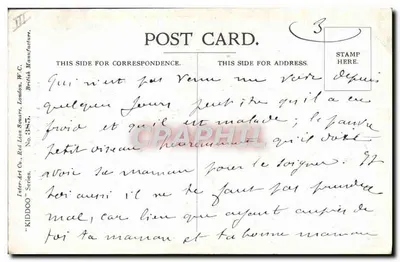 POST CARD.
THIS SIDE FOR CORRESPONDENCE.
THIS SIDE FOR ADDRESS.
STAMP
HERE.
3
"KIDDOO" Series. No. 2185.
Inter-Art Co., Red Lion Square, London, W.C.
British Manufacture.
Qui n'est pas venu me voir depuis
quelques jours peut être qu'il a eu
froid et qu'il est malade; le pauvre
petit oiseau heureusement qu'il doit
avoir sa maman pour le soigner. Et
toi aussi il ne te faut pas prendre
mal, car bien que ayant auprès de
toi ta maman et ta bonne maman
CPRPHOTO